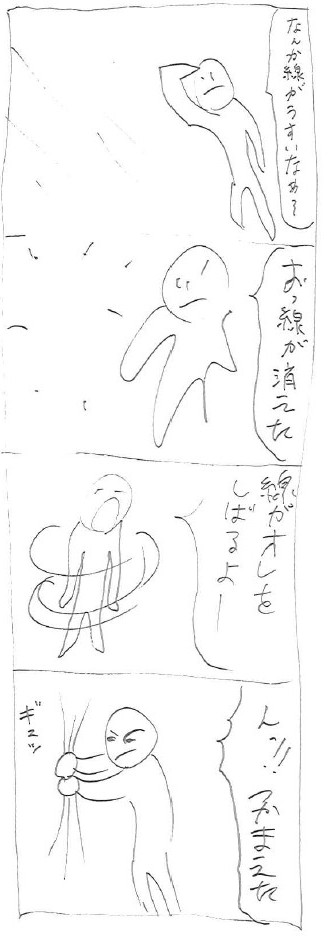 なんか線がうすいなあ〜
おっ線が消えた
線がオレを
しばるよー
んっ!!つかまえた
ギュッ